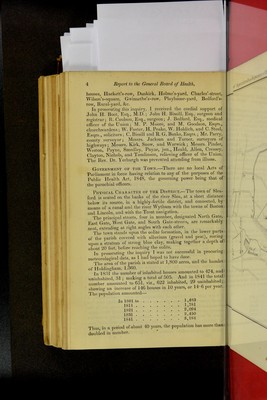 4 Report to the General Board of Health,
houses, Hackett's-row, Dunkirk, Holme's-yard, Charles'-street,
Wilson's-square, Gwinnettle's-row, Playhouse-yard, Bedford's-
row, Burial-yard, &c.
In prosecuting this inquiry, I received the cordial support of
John H. Bent, Esq., M.D.; John H. Bissill, Esq. surgeon and
registrar; R. Cubison, Esq., surgeon; J. Dafford, Esq., medical
officer of the Union; M. P. Moore, and M. Goodson, Esqrs.,
churchwardens; W. Foster, H. Peake, W. Holdich, and C. Steel,
Esqrs., solicitors; C. Bissill and B. G. Banks, Esqrs.; Mr. Parry,
county surveyor; Messrs. Jackson and Turner, surveyors of
highways; Messrs. Kirk, Snow, and Warwick; Messrs. Pinder,
Weston, Payne, Smedley, Payne, jun., Heald, Atkin, Creasey,
Clayton, Nichols, and Tomlinson, relieving officer of the Union.
The Rev. Dr. Yerburgh was prevented attending from illness.
GOVERNMENT OF THE TOWN.—There are no local Acts of
Parliament in force having relation to any of the purposes of the
Public Health Act, 1848, the governing power being that of
the parochial officers.
PHYSICAL CHARACTER OF THE DISTRICT.—The town of Slea-
ford is seated on the banks of the river Slea, at a short distance
below its source, in a highly-fertile district, and connected, by
means of a canal and the river Witham with the towns of Boston
and Lincoln, and with the Trent navigation.
The principal streets, four in number, designated North Gate,
East Gate, West Gate, and South Gate-streets, are remarkably
neat, extending at right angles with each other.
The town stands upon the oolite formation, in the lower parts
of the parish covered with alluvium (gravel and peat), resting
upon a stratum of strong blue clay, making together a depth of
about 20 feet, before reaching the oolite.
In prosecuting the inquiry I was not so successful in procuring
meteorological data, as I had hoped to have done.
The area of the parish is stated at 1,800 acres, and the hamlet
of Holdingham, 1,360.
In 1831 the number of inhabited houses amounted to 474, and
uninhabited, 31; making a total of 505. And in 1841 the total
number amounted to 651, viz., 622 inhabited, 29 uninhabited;
showing an increase of 146 houses in 10 years, or 14·6 per year.
The population amounted—
In 1801 to . . . . . . 1,483
1811 . . . . . . . 1,781
1821 . . . . . . . 2,094
1831 . . . . . . . 2,450
1841 . . . . . . . 3,184
Thus, in a period of about 40 years, the population has more than
doubled in number.